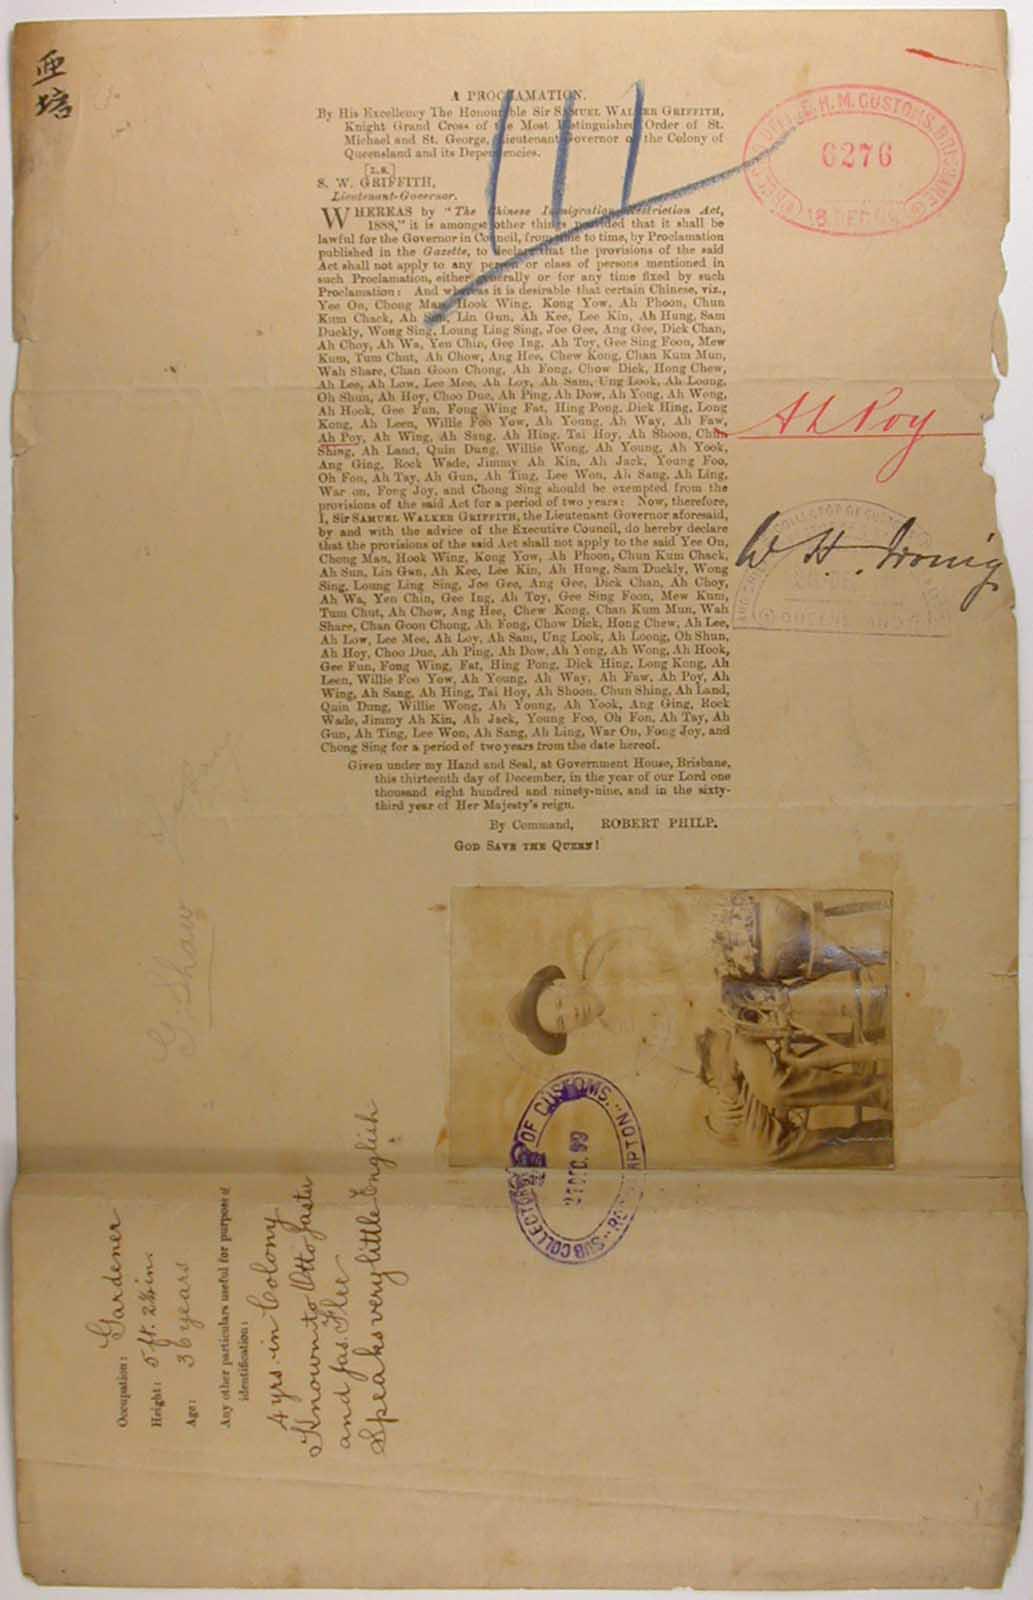 亜
培
A PROCLAMATION.
By His Excellency The Honourable Sir SAMUEL WALKER GRIFFITH,
Knight Grand Cross of the Most Distinguished Order of St.
Michael and St. George, Lieutenant-Governor of the Colony of
Queensland and its Dependencies.
[L.S.]
S. W. GRIFFITH,
Lieutenant-Governor.
WHEREAS by "The Chinese Immigration Restriction Act,
1888," it is amongst other things provided that it shall be
lawful for the Governor in Council, from time to time, by Proclamation
published in the Gazette, to declare that the provisions of the said
Act shall not apply to any person or class of persons mentioned in
such Proclamation, either generally or for any time fixed by such
Proclamation: And whereas it is desirable that certain Chinese, viz.,
Yee On, Chong Man, Hook Wing, Kong Yow, Ah Phoon, Chun
Kum Chack, Ah Sun, Lin Gun, Ah Kee, Lee Kin, Ah Hung, Sam
Duckly, Wong Sing, Loung Ling Sing, Joe Gee, Ang Gee, Dick Chan,
Ah Choy, Ah Wa, Yen Chin, Gee Ing, Ah Toy, Gee Sing Foon, Mew
Kum, Tum Chut, Ah Chow, Ang Hee, Chew Kong, Chan Kum Mun,
Wah Share, Chan Goon Chong, Ah Fong, Chow Dick, Hong Chew,
Ah Lee, Ah Low, Lee Mee, Ah Loy, Ah Sam, Ung Look, Ah Loong,
Oh Shun, Ah Hoy, Choo Duc, Ah Ping, Ah Dow, Ah Yong, Ah Wong,
Ah Hook, Gee Fun, Fong Wing Fat, Hing Pong, Dick Hing, Long
Kong, Ah Leen, Willie Foo Yow, Ah Young, Ah Way, Ah Faw,
Ah Poy, Ah Wing, Ah Sang, Ah Hing, Tai Hoy, Ah Shoon, Chun
Shing, Ah Land, Quin Dung, Willie Wong, Ah Young, Ah Yook,
Ang Ging, Rock Wade, Jimmy Ah Kin, Ah Jack, Young Foo,
Oh Fon, Ah Tay, Ah Gun, Ah Ting, Lee Won, Ah Sang, Ah Ling,
War on, Fong Joy, and Chong Sing should be exempted from the
provisions of the said Act for a period of two years: Now, therefore,
I, Sir SAMUEL WALKER GRIFFITH, the Lieutenant Governor aforesaid,
by and with the advice of the Executive Council, do hereby declare
that the provisions of the said Act shall not apply to the said Yee On,
Chong Man, Hook Wing, Kong Yow, Ah Phoon, Chun Kum Chack,
Ah Sun, Lin Gun, Ah Kee, Lee Kin, Ah Hung, Sam Duckly, Wong
Sing, Loung Ling Sing, Joe Gee, Ang Gee, Dick Chan, Ah Choy,
Ah Wa, Yen Chin, Gee Ing, Ah Toy, Gee Sing Foon, Mew Kum,
Tum Chut, Ah Chow, Ang Hee, Chew Kong, Chan Kum Mun, Wah
Share, Chan Goon Chong, Ah Fong, Chow Dick, Hong Chew, Ah Lee,
Ah Low, Lee Mee, Ah Loy, Ah Sam, Ung Look, Ah Loong, Oh Shun,
Ah Hoy, Choo Duc, Ah Ping, Ah Dow, Ah Yong, Ah Wong, Ah Hook,
Gee Fun, Fong Wing, Fat, Hing Pong, Dick Hing, Long Kong, Ah
Leen, Willie Foo Yow, Ah Young, Ah Way, Ah Faw, Ah Poy, Ah
Wing, Ah Sang, Ah Hing, Tai Hoy, Ah Shoon, Chun Shing, Ah Land,
Quin Dung, Willie Wong, Ah Young, Ah Yook, Ang Ging, Rock
Wade, Jimmy Ah Kin, Ah Jack, Young Foo, Oh Fon, Ah Tay, Ah
Gun, Ah Ting, Lee Won, Ah Sang, Ah Ling, War On, Fong Joy, and
Chong Sing for a period of two years from the date hereof.
Given under my Hand and Seal, at Government House, Brisbane,
this thirteenth day of December, in the year of our Lord one
thousand eight hundred and ninety-nine, and in the sixty-
third year of Her Majesty's reign.
By Command, ROBERT PHILP.
GOD SAVE THE QUEEN!
H.M. CUSTOMS, BRISBANE
6276
18 DEC 99
Ah Poy
COLLECTOR OF CUSTOMS
QUEENSLAND
W. H. Irving
G Shaw
SUB COLLECTOR OF CUSTOMS. "ROCKHAMPTON"
21 DEC. 99
Occupation: Gardener
Height: 5 ft. 2½ in.
Age: 36 years
Any other particulars useful for purposes of
identification:
4 yrs. in Colony
Known to Otto Jaster
and Jas. Flee
Speaks very little English.